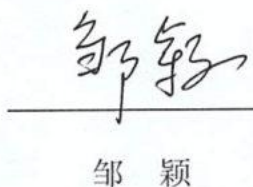 邹颖
邹 颖